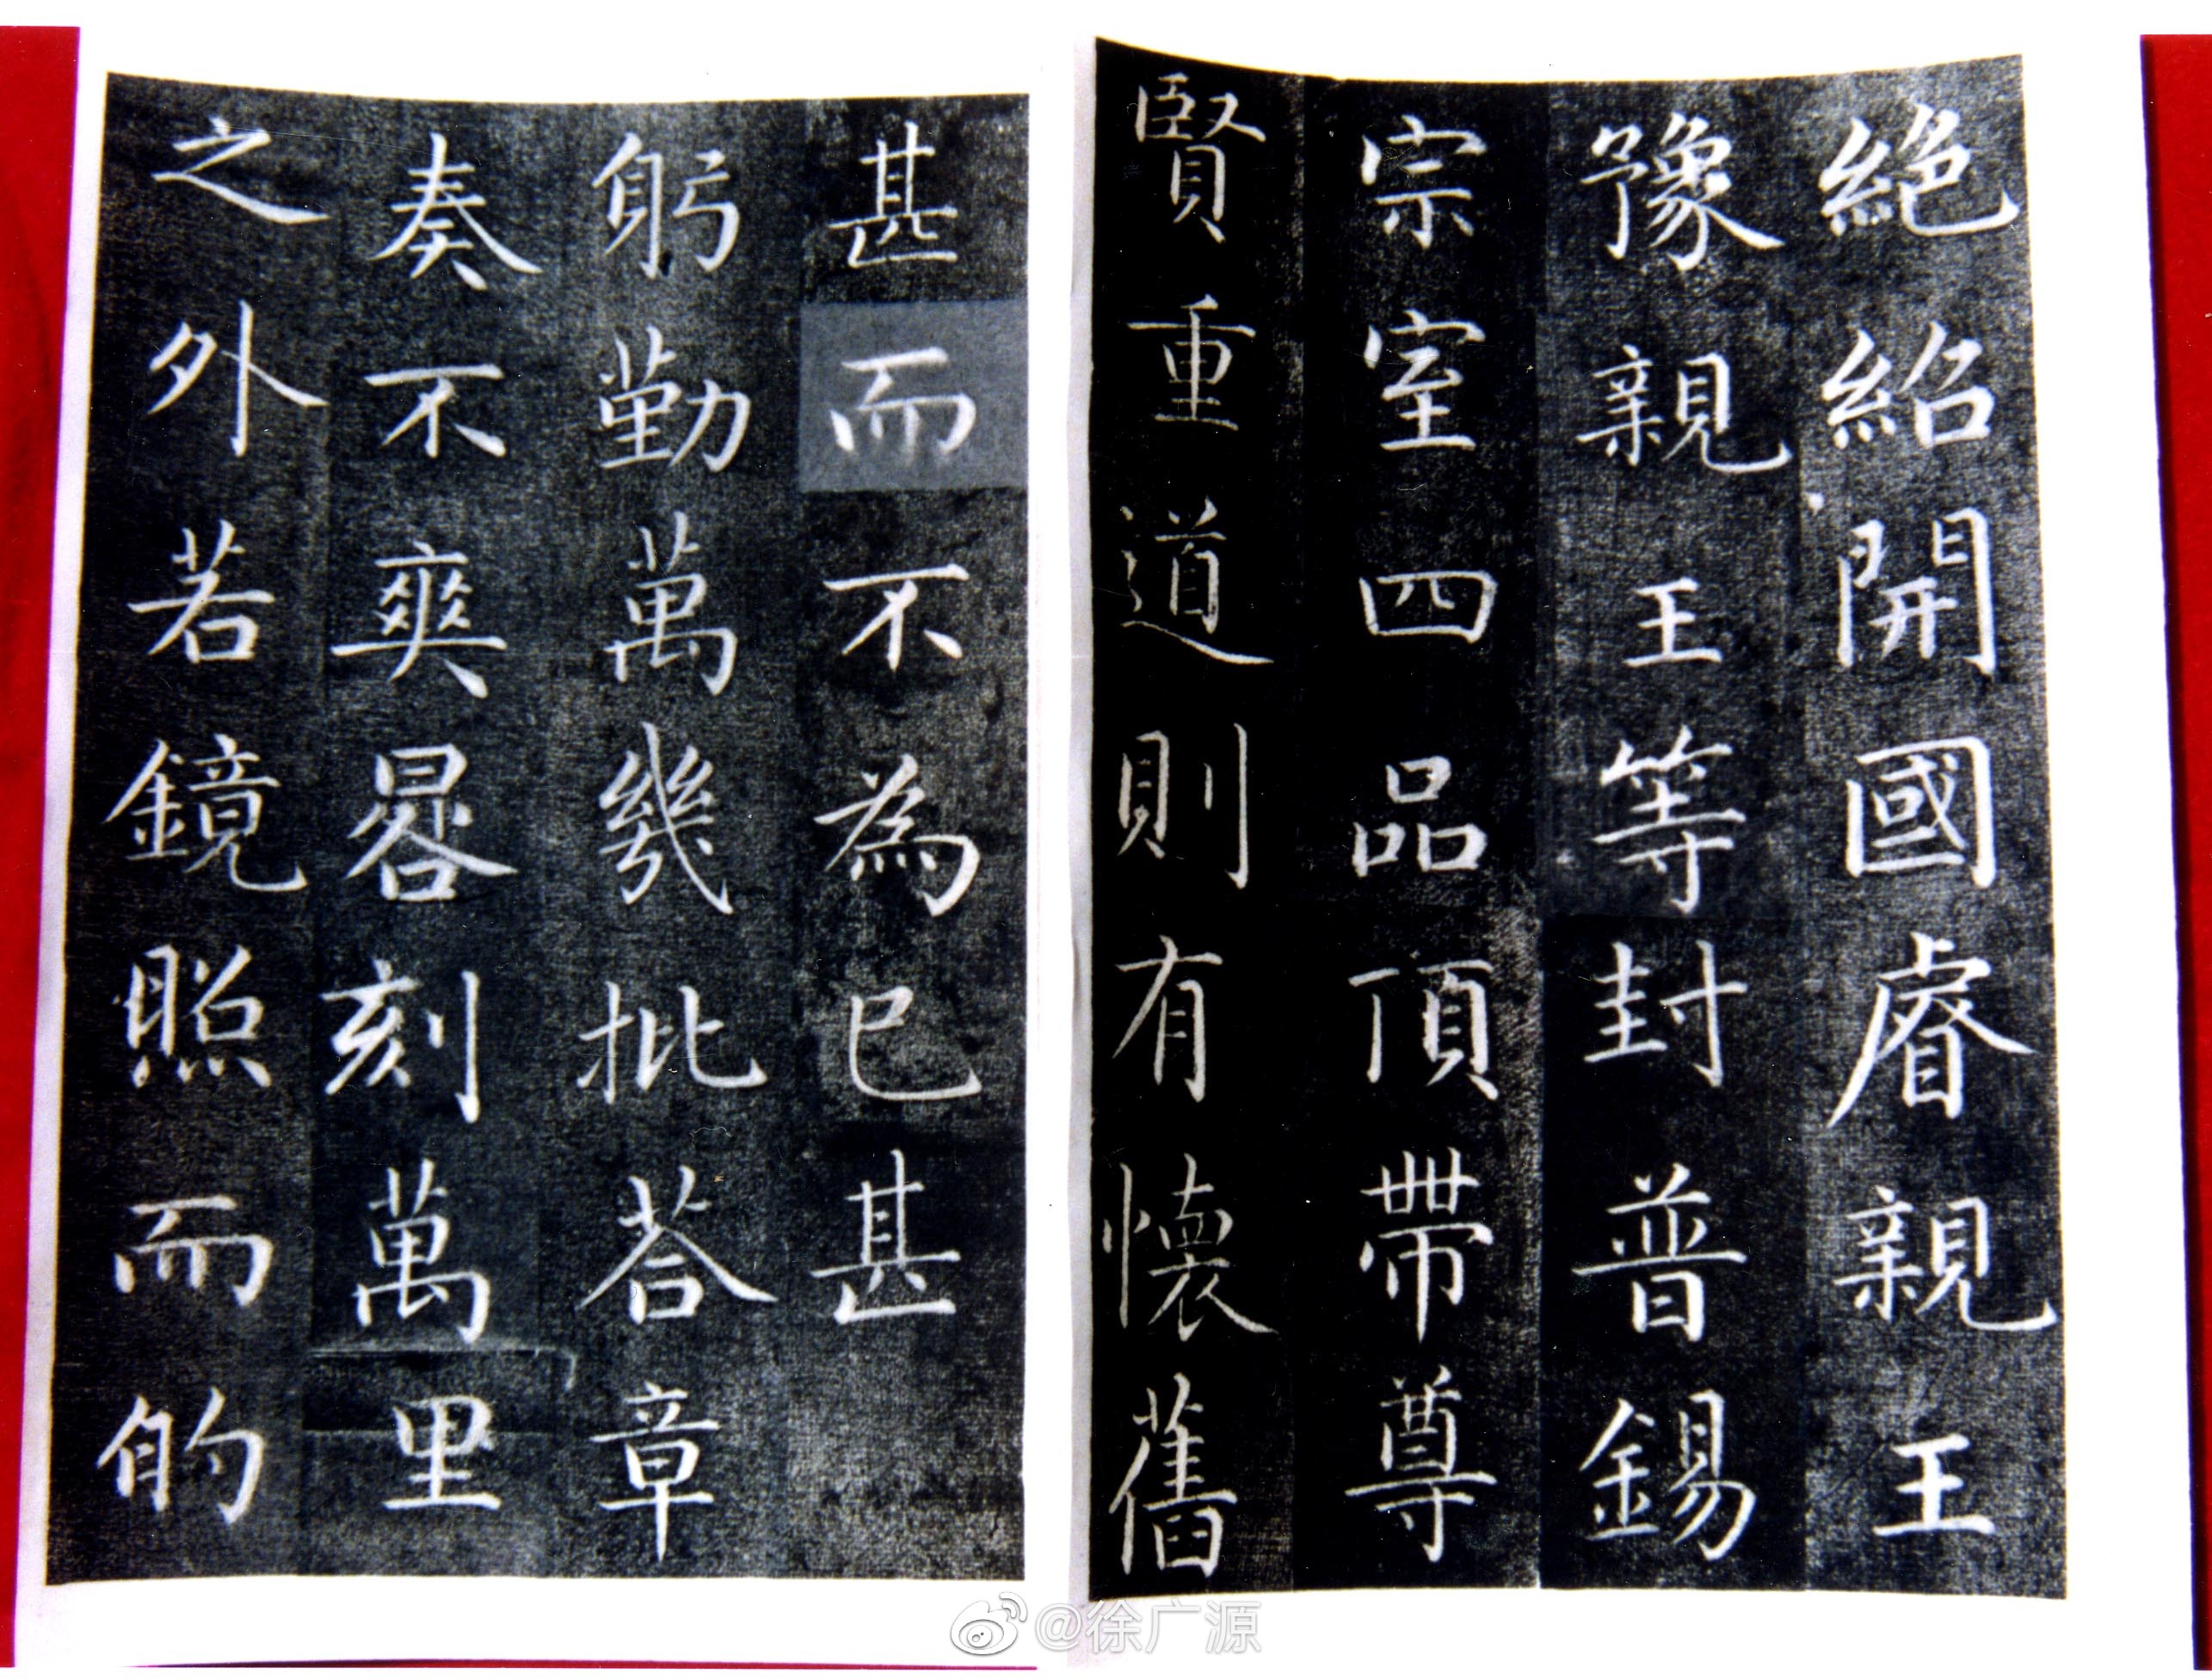 絶紹開國睿親王
豫親王等封普錫
宗室四品頂帶尊
賢重道則有懷舊
甚而不為已甚
躬勤萬幾批荅章
奏不爽晷刻萬里
之外若鏡照而的
@徐广源